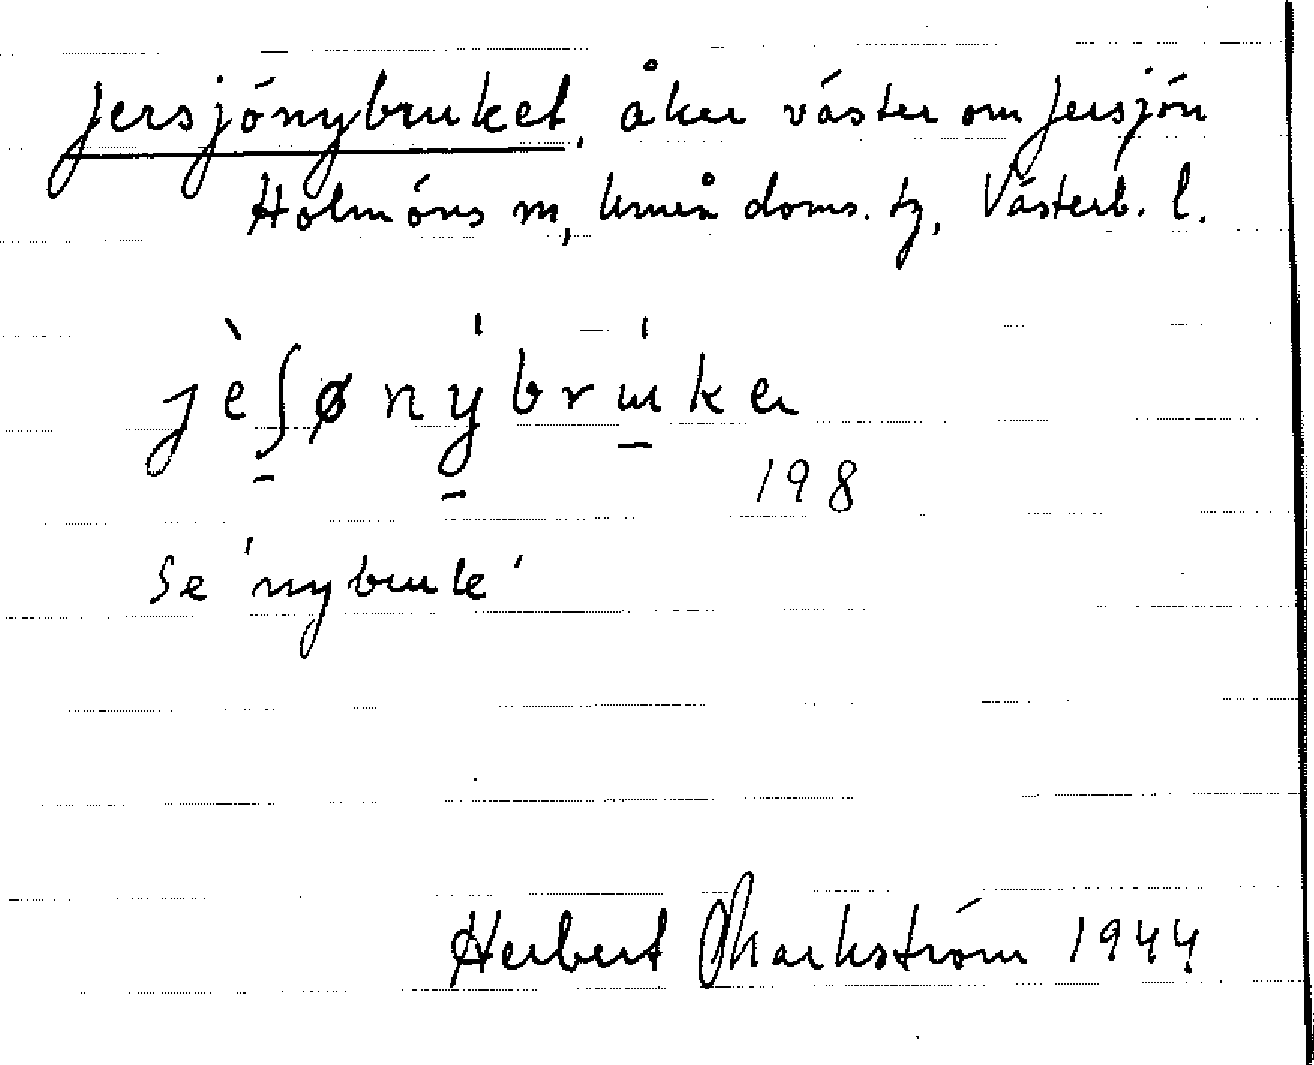 Jersjönybruket, åker väster om Jersjön
Holmöns m, Umeå doms. tg, Västerb. l.
jèʃønýbrúker
198
Se 'nybruk'
Herbert Markström 1944